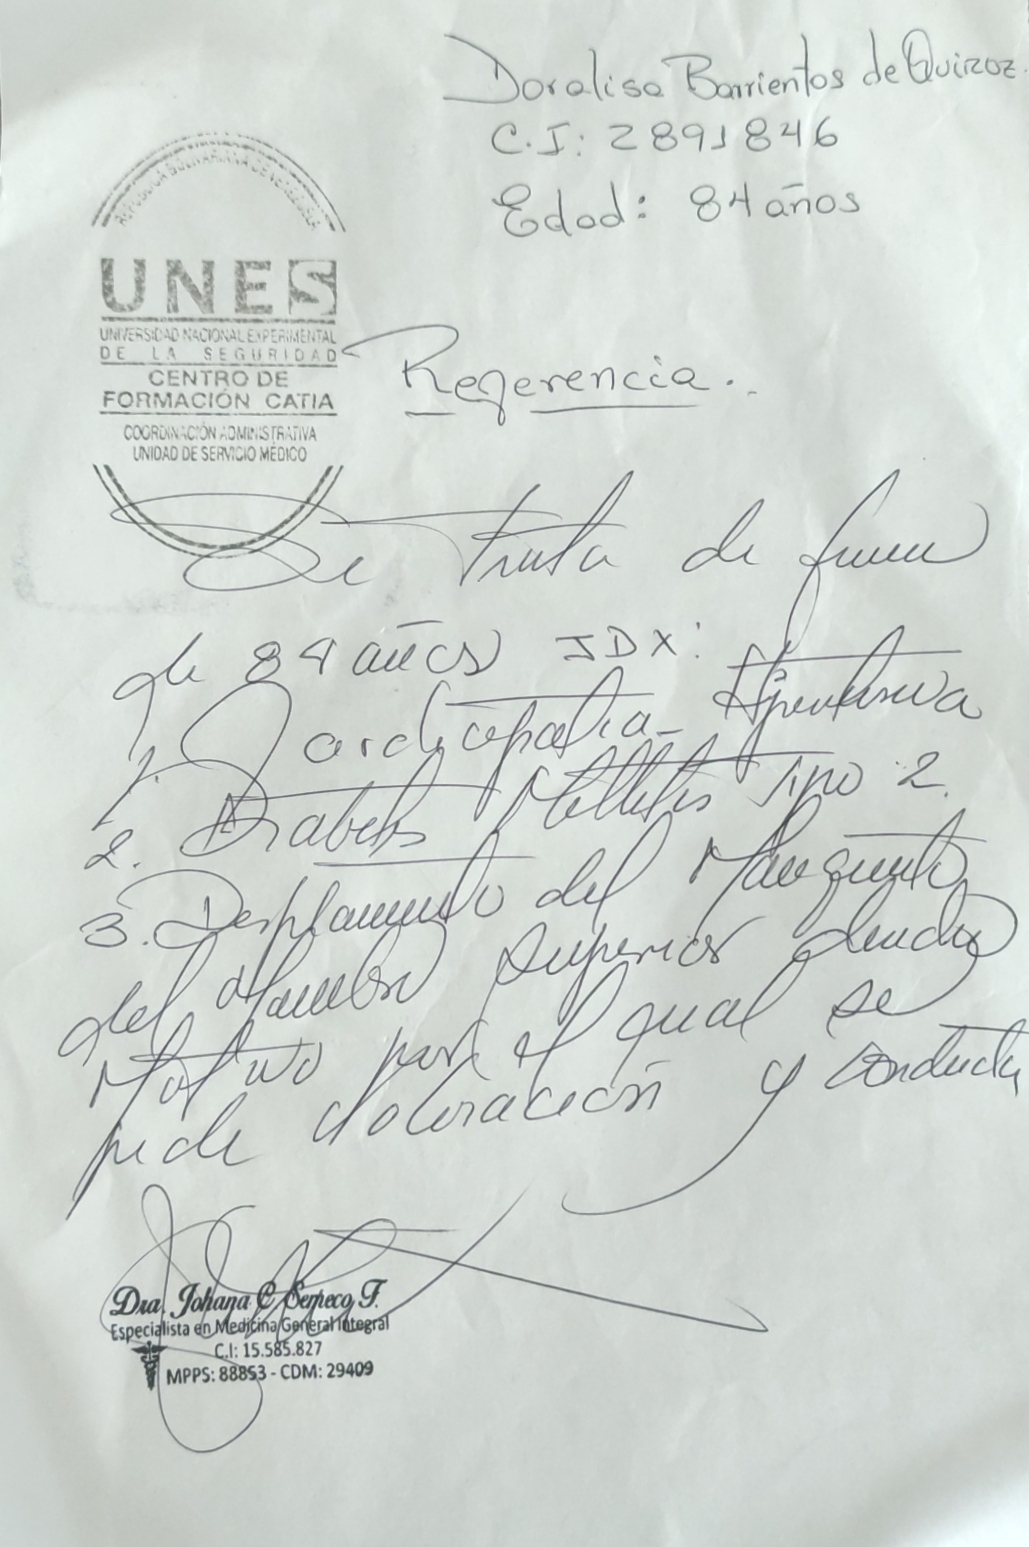 Doralisa Barrientos de Quiroz.
C.I: 2891846
Edad: 84 años
REPÚBLICA BOLIVARIANA DE VENEZUELA
UNES
UNIVERSIDAD NACIONAL EXPERIMENTAL
DE LA SEGURIDAD
CENTRO DE
FORMACIÓN CATIA
COORDINACIÓN ADMINISTRATIVA
UNIDAD DE SERVICIO MÉDICO
Referencia.
Se trata de
de 84 años IDX:
1. Cardiopatia Hipertensiva
2. Diabetes Mellitus Tipo 2.
3. del Manguito
del superior
Motivo por el qual se
pide valoración y conducta
Dra. Johana C Semeco F.
Especialista en Medicina General Integral
C.I: 15.585.827
MPPS: 88853 - CDM: 29409